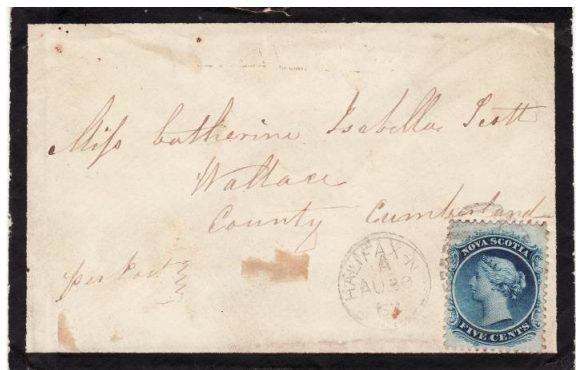 Miss Catherine Isabella Scott
Wallace
County Cumberland
per Post
HALIFAX·N
A
AU
NOVA SCOTIA
FIVE CENTS